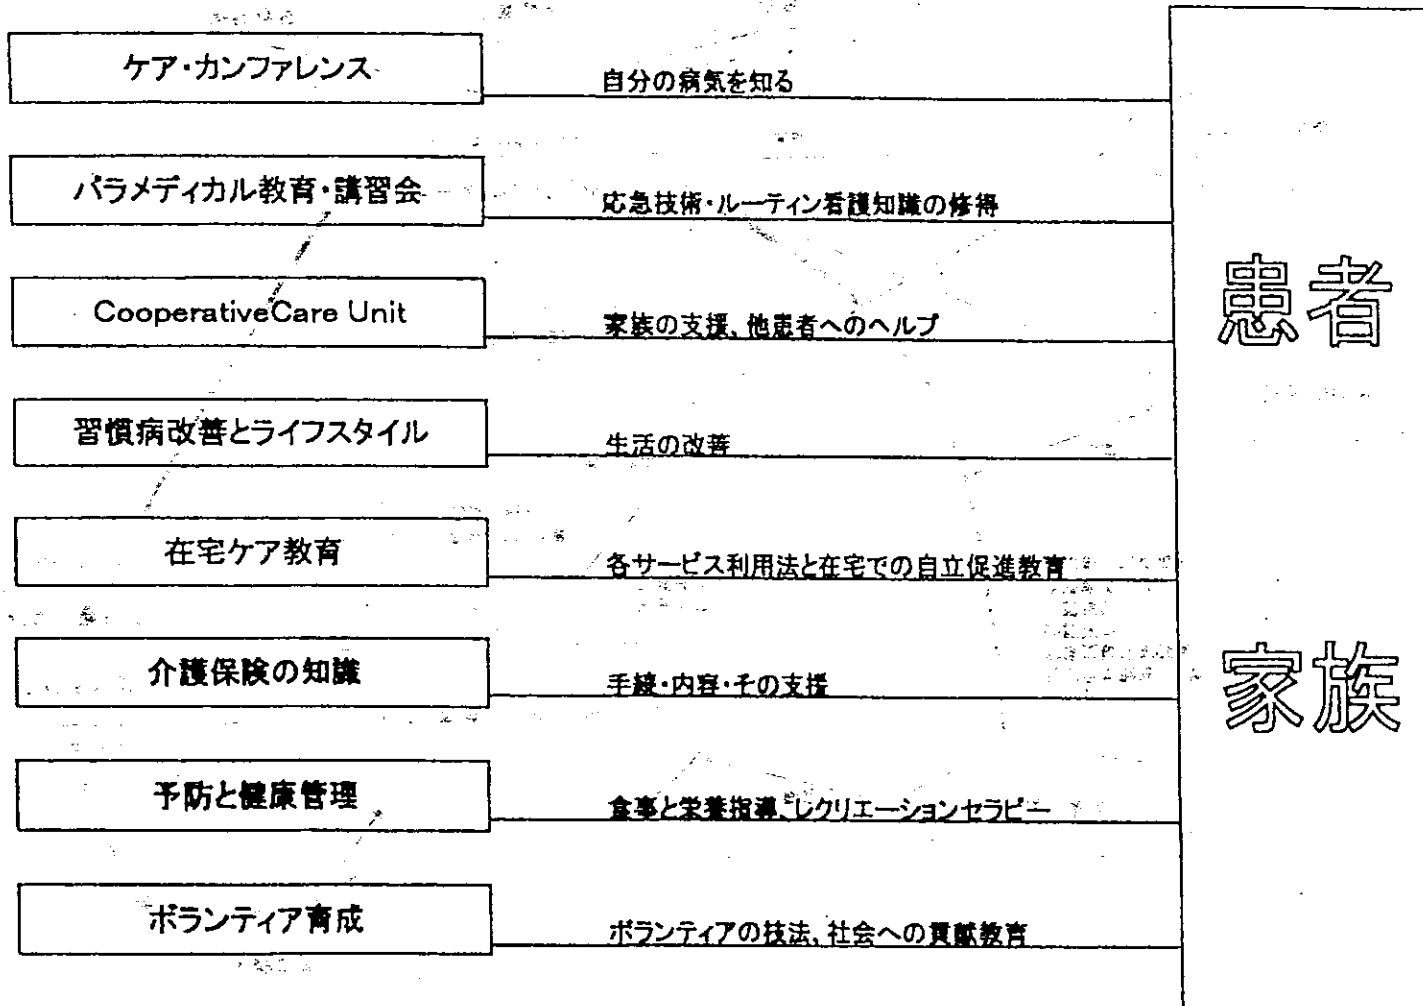 ケア・カンファレンス
自分の病気を知る
パラメディカル教育・講習会
応急技術・ルーティン看護知識の修得
CooperativeCare Unit
家族の支援、他患者へのヘルプ
患者
習慣病改善とライフスタイル
生活の改善
在宅ケア教育
各サービス利用法と在宅での自立促進教育
介護保険の知識
手続・内容・その支援
家族
予防と健康管理
食事と栄養指導、レクリエーションセラピー
ボランティア育成
ボランティアの技法、社会への貢献教育